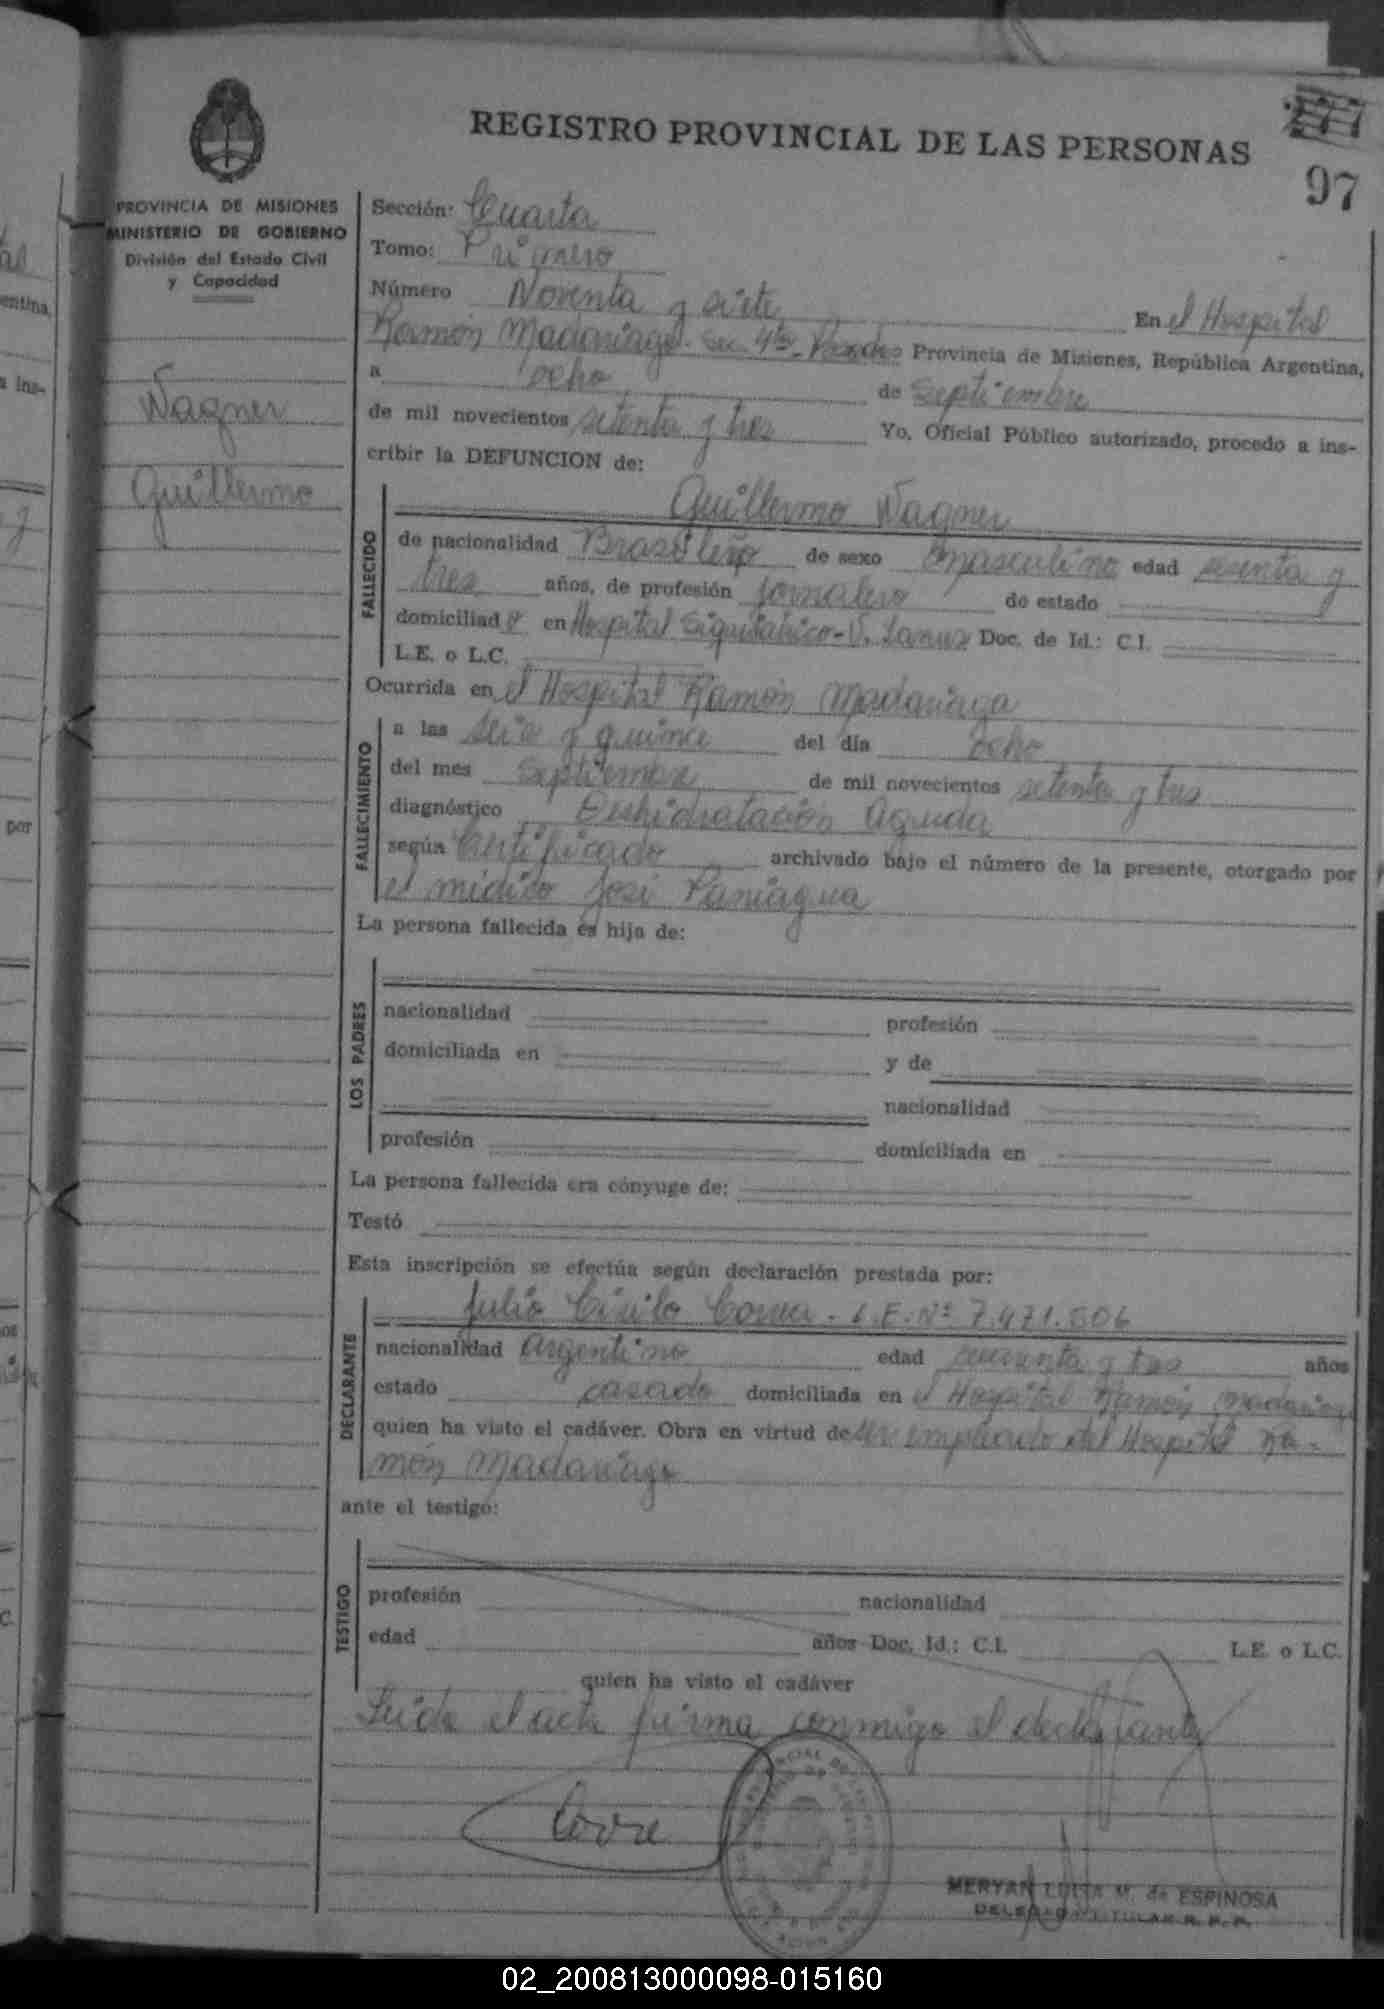 REGISTRO PROVINCIAL DE LAS PERSONAS
97
PROVINCIA DE MISIONES
MINISTERIO DE GOBIERNO
División del Estado Civil
y Capacidad
Wagner
Guillermo
Sección: Cuarta
Tomo: Primero
Número Noventa y siete
En el Hospital
Ramón Madariaga - Provincia de Misiones, República Argentina,
a ocho de septiembre
de mil novecientos setenta y tres Yo, Oficial Público autorizado, procedo a ins-
cribir la DEFUNCION de:
Guillermo Wagner
FALLECIDO
de nacionalidad Brasileño de sexo masculino edad sesenta y
tres años, de profesión jornalero de estado
domiciliad o en Hospital Siquiatrico - V. Lanus Doc. de Id.: C.I.
L.E. o L.C.
Ocurrida en el Hospital Ramón Madariaga
FALLECIMIENTO
a las seis y quince del día ocho
del mes septiembre de mil novecientos setenta y tres
diagnóstico Deshidratación Aguda
según Certificado archivado bajo el número de la presente, otorgado por
el médico José Paniagua
La persona fallecida es hija de:
LOS PADRES
nacionalidad profesión
domiciliada en y de
nacionalidad
profesión domiciliada en
La persona fallecida era cónyuge de:
Testó
Esta inscripción se efectúa según declaración prestada por:
DECLARANTE
Julio Cirilo - L.E. Nº 7.471.506
nacionalidad argentino edad cuarenta y tres años
estado casado domiciliada en el Hospital Ramón Madariaga
quien ha visto el cadáver. Obra en virtud de ser empleado del Hospital Ra-
món Madariaga
ante el testigo:
TESTIGO
profesión nacionalidad
edad años Doc. Id.: C.I. L.E. o L.C.
quien ha visto el cadáver
Leida el acta firma conmigo el declarante
MERYAN LUISA M. de ESPINOSA
DELEGADA TITULAR R. P. P.
02_200813000098-015160